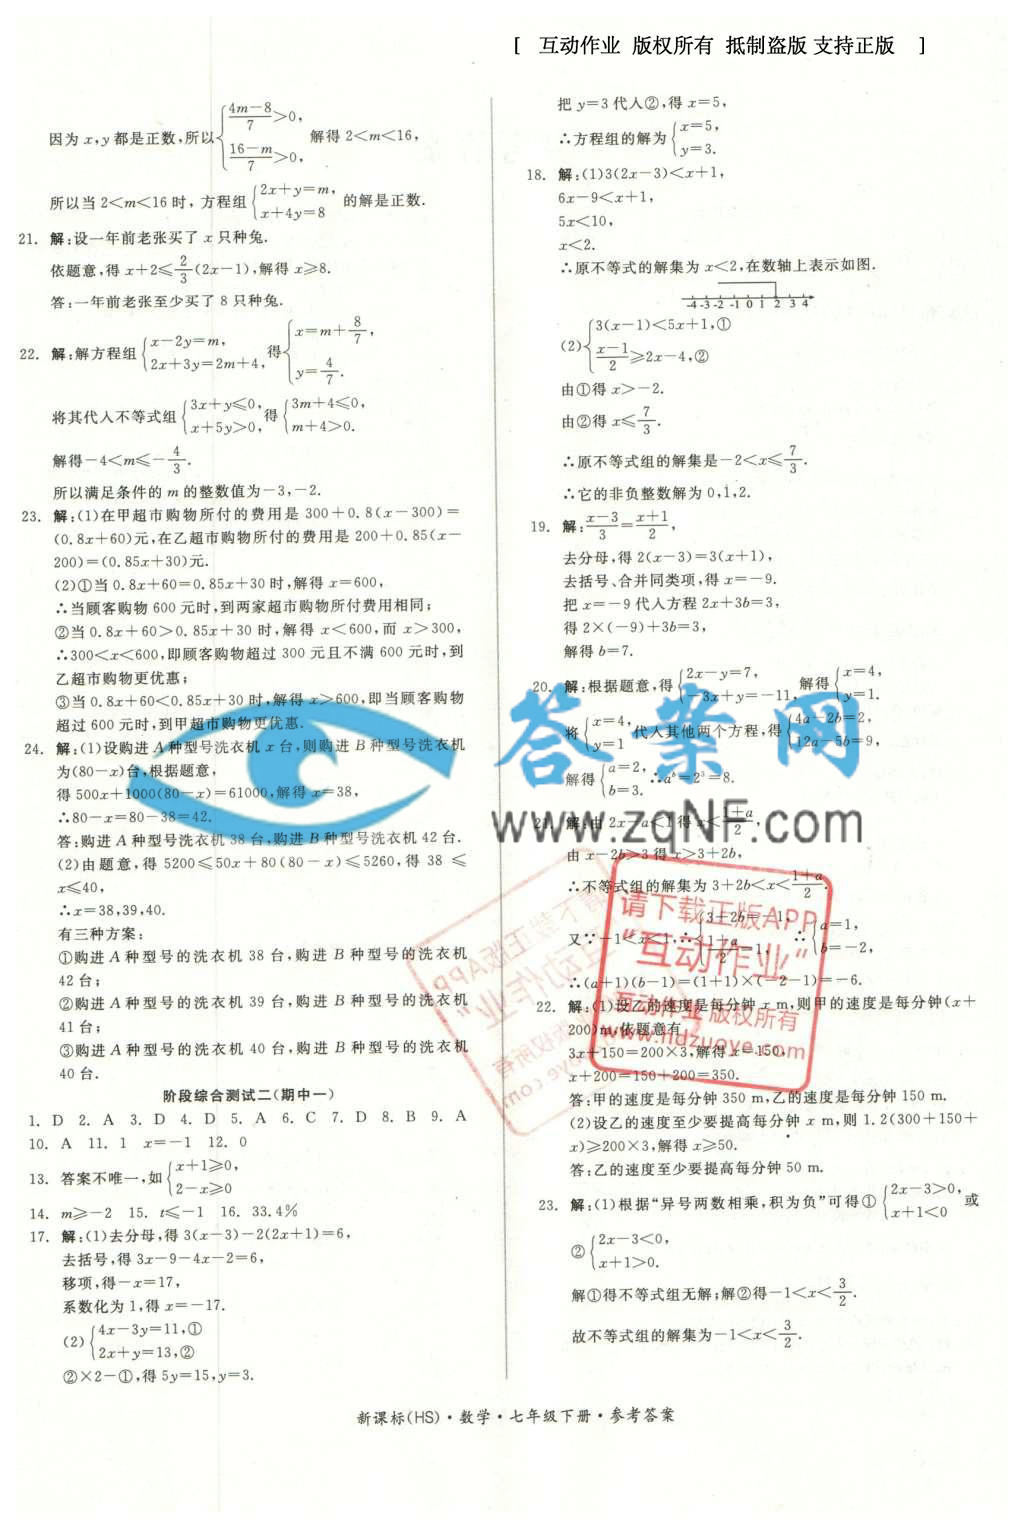 [ 互动作业 版权所有 抵制盗版 支持正版 ]
因为 x,y 都是正数,所以{(4m-8)/7>0, (16-m)/7>0, 解得 2<m<16,
所以当 2<m<16 时,方程组{2x+y=m, x+4y=8 的解是正数.
21. 解:设一年前老张买了 x 只种兔.
依题意,得 x+2≤2/3(2x-1),解得 x≥8.
答:一年前老张至少买了 8 只种兔.
22. 解:解方程组{x-2y=m, 2x+3y=2m+4, 得{x=m+8/7, y=4/7.
将其代入不等式组{3x+y≤0, x+5y>0, 得{3m+4≤0, m+4>0.
解得-4<m≤-4/3.
所以满足条件的 m 的整数值为-3,-2.
23. 解:(1)在甲超市购物所付的费用是 300+0.8(x-300)=
(0.8x+60)元,在乙超市购物所付的费用是 200+0.85(x-
200)=(0.85x+30)元.
(2)①当 0.8x+60=0.85x+30 时,解得 x=600,
∴当顾客购物 600 元时,到两家超市购物所付费用相同;
②当 0.8x+60>0.85x+30 时,解得 x<600,而 x>300,
∴300<x<600,即顾客购物超过 300 元且不满 600 元时,到
乙超市购物更优惠;
③当 0.8x+60<0.85x+30 时,解得 x>600,即当顾客购物
超过 600 元时,到甲超市购物更优惠.
24. 解:(1)设购进 A 种型号洗衣机 x 台,则购进 B 种型号洗衣机
为(80-x)台,根据题意,
得 500x+1000(80-x)=61000,解得 x=38,
∴80-x=80-38=42.
答:购进 A 种型号洗衣机 38 台,购进 B 种型号洗衣机 42 台.
(2)由题意,得 5200≤50x+80(80-x)≤5260,得 38≤
x≤40,
∴x=38,39,40.
有三种方案:
①购进 A 种型号的洗衣机 38 台,购进 B 种型号的洗衣机
42 台;
②购进 A 种型号的洗衣机 39 台,购进 B 种型号的洗衣机
41 台;
③购进 A 种型号的洗衣机 40 台,购进 B 种型号的洗衣机
40 台.
阶段综合测试二(期中一)
1. D 2. A 3. D 4. D 5. A 6. C 7. D 8. B 9. A
10. A 11. 1 x=-1 12. 0
13. 答案不唯一,如{x+1≥0, 2-x≥0
14. m≥-2 15. t≤-1 16. 33.4%
17. 解:(1)去分母,得 3(x-3)-2(2x+1)=6,
去括号,得 3x-9-4x-2=6,
移项,得-x=17,
系数化为 1,得 x=-17.
(2){4x-3y=11,① 2x+y=13,②
②×2-①,得 5y=15,y=3.
把 y=3 代入②,得 x=5,
∴方程组的解为{x=5, y=3.
18. 解:(1)3(2x-3)<x+1,
6x-9<x+1,
5x<10,
x<2.
∴原不等式的解集为 x<2,在数轴上表示如图.
-4 -3 -2 -1 0 1 2 3 4
(2){3(x-1)<5x+1,① (x-1)/2≥2x-4,②
由①得 x>-2.
由②得 x≤7/3.
∴原不等式组的解集是-2<x≤7/3.
∴它的非负整数解为 0,1,2.
19. 解:(x-3)/3=(x+1)/2,
去分母,得 2(x-3)=3(x+1),
去括号、合并同类项,得 x=-9.
把 x=-9 代入方程 2x+3b=3,
得 2×(-9)+3b=3,
解得 b=7.
20. 解:根据题意,得{2x-y=7, -3x+y=-11, 解得{x=4, y=1.
将{x=4, y=1 代入其他两个方程,得{4a-2b=2, 12a-5b=9,
解得{a=2, b=3. ∴a^b=2³=8.
21. 解:由 2x-a<1 得 x<(1+a)/2,
由 x-2b>3 得 x>3+2b,
∴不等式组的解集为 3+2b<x<(1+a)/2.
又∵-1<x<1,∴{3+2b=-1, (1+a)/2=1, ∴{a=1, b=-2,
∴(a+1)(b-1)=(1+1)×(-2-1)=-6.
22. 解:(1)设乙的速度是每分钟 x m,则甲的速度是每分钟(x+
200)m,依题意有
3x+150=200×3,解得 x=150,
x+200=150+200=350.
答:甲的速度是每分钟 350 m,乙的速度是每分钟 150 m.
(2)设乙的速度至少要提高每分钟 x m,则 1.2(300+150+
x)≥200×3,解得 x≥50.
答:乙的速度至少要提高每分钟 50 m.
23. 解:(1)根据“异号两数相乘,积为负”可得①{2x-3>0, x+1<0 或
②{2x-3<0, x+1>0.
解①得不等式组无解;解②得-1<x<3/2.
故不等式组的解集为-1<x<3/2.
新课标(HS)·数学·七年级下册·参考答案
答案网
www.zqNF.com
请下载正版APP
“互动作业”
互动作业 版权所有
www.hdzuoye.com